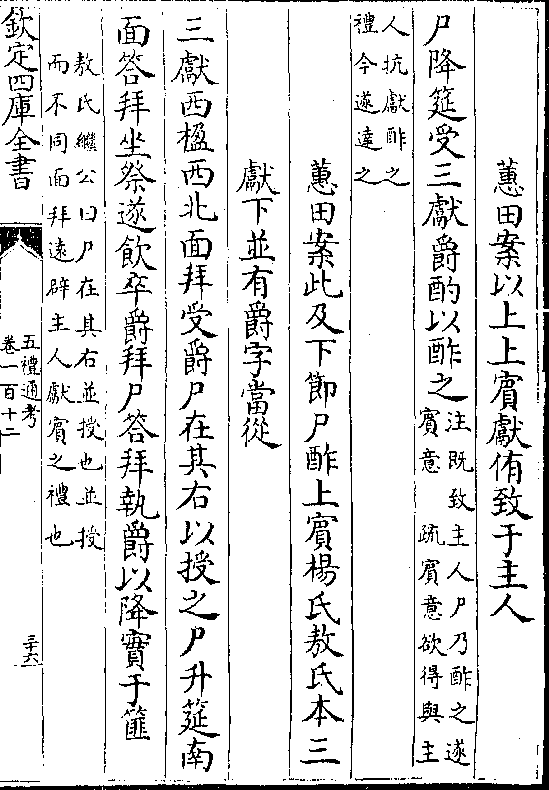 蕙田案以上上賓獻侑致于主人
尸降筵受三獻爵酌以酢之
注既致主人尸乃酢之遂
賓意　疏賓意欲得與主
人抗獻酢之
禮今遂達之
蕙田案此及下節尸酢上賓楊氏敖氏本三
獻下並有爵字當從
三獻西楹西北面拜受爵尸在其右以授之尸升筵南
面答拜坐祭遂飲卒爵拜尸答拜執爵以降實于篚
敖氏繼公曰尸在其右並授也並授
而不同面拜遠辟主人獻賓之禮也
欽定四庫全書
五禮通考
卷一百十二
三十六